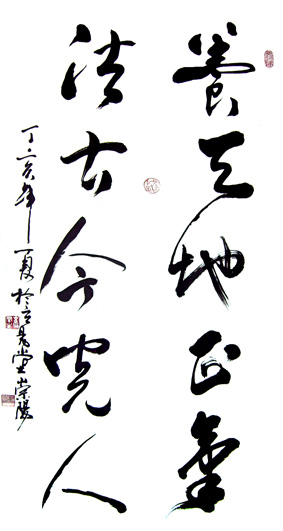 養天地正氣
法古今完人
丁亥年夏於堂崇陽